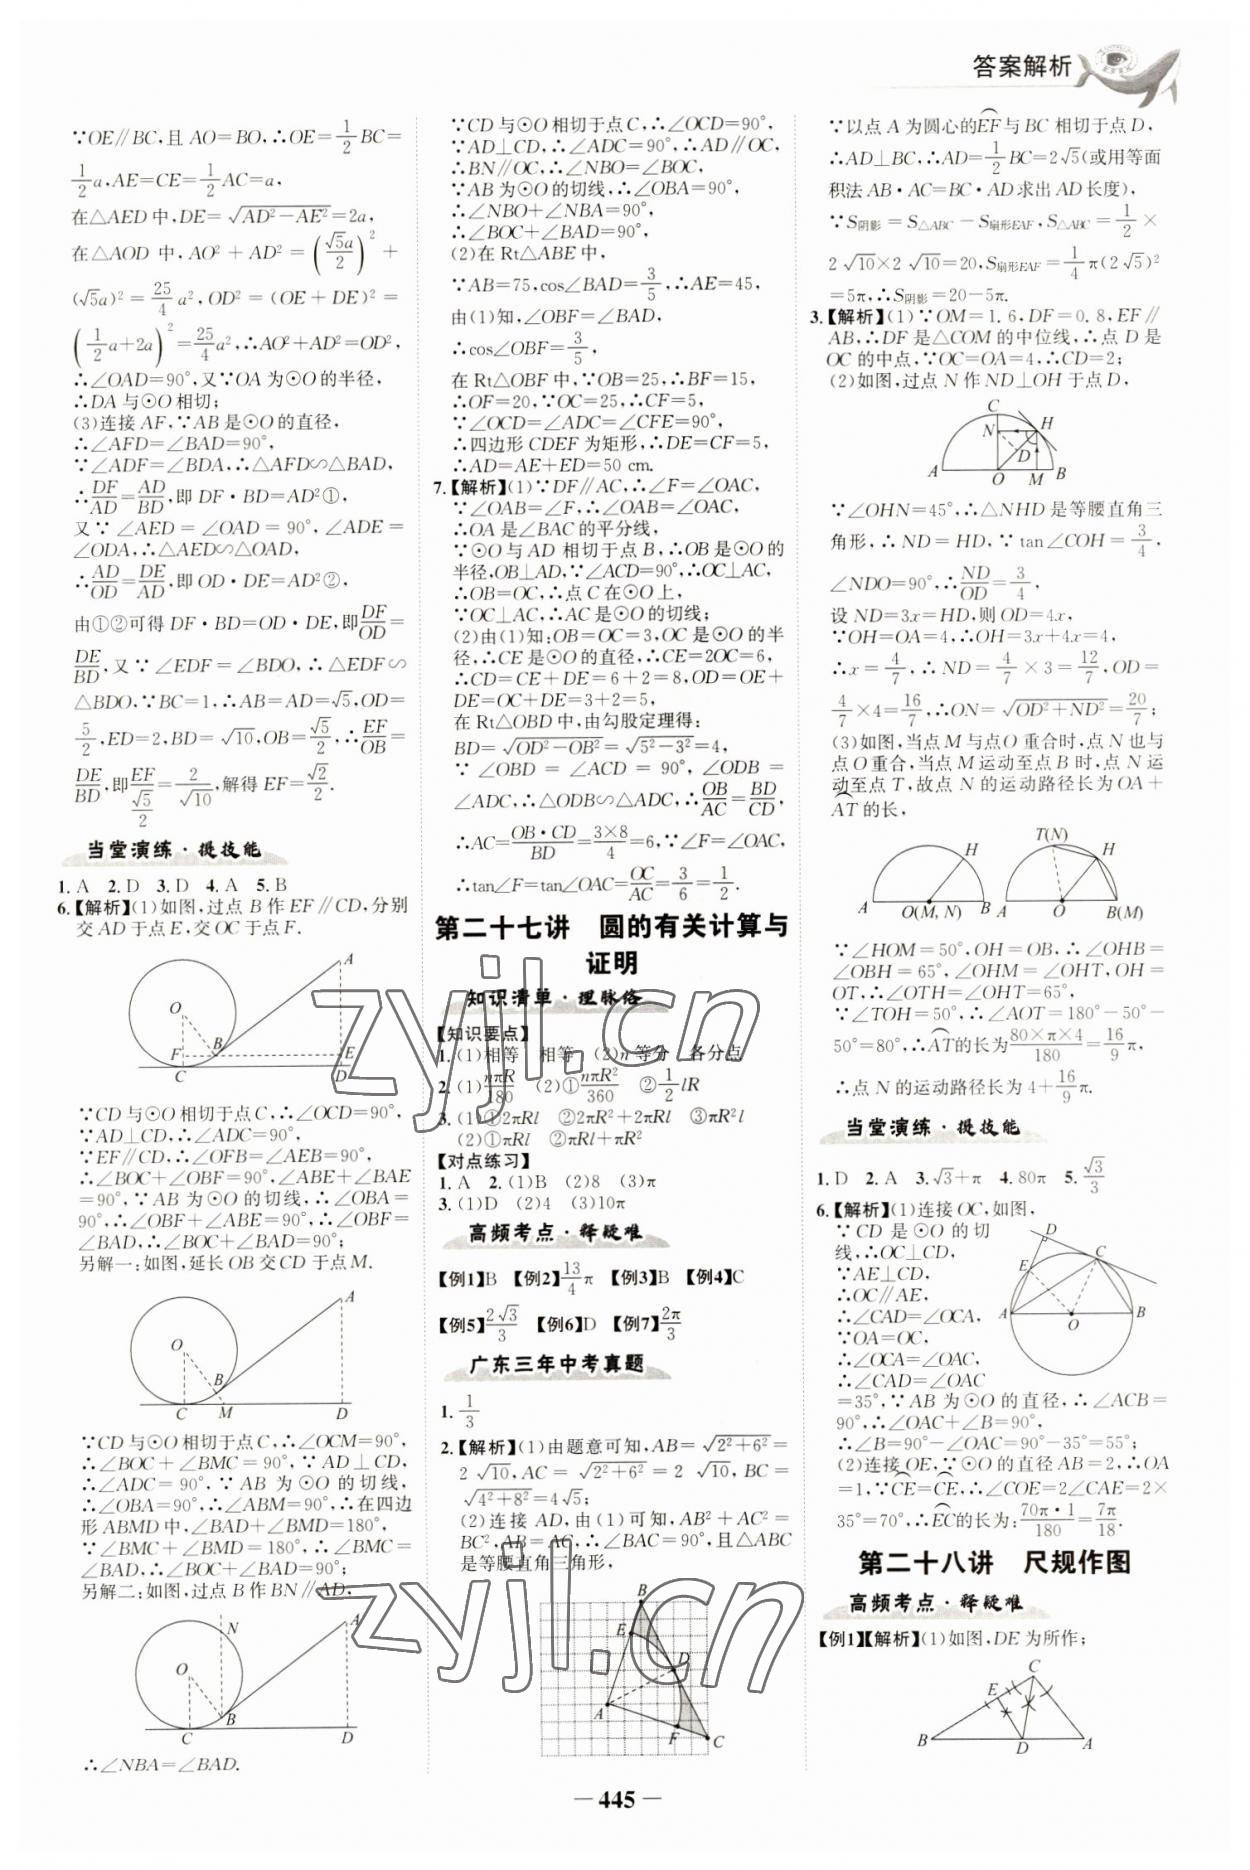 答案解析
∵OE∥BC,且 AO=BO,∴OE=1/2 BC=
1/2 a,AE=CE=1/2 AC=a,
在△AED 中,DE=√(AD²−AE²)=2a,
在△AOD 中,AO²+AD²=(√5a/2)²+
(√5a)²=25/4 a²,OD²=(OE+DE)²=
(1/2 a+2a)²=25/4 a²,∴AO²+AD²=OD²,
∴∠OAD=90°,又∵OA为⊙O的半径,
∴DA与⊙O相切;
(3)连接 AF,∵AB是⊙O的直径,
∴∠AFD=∠BAD=90°,
∵∠ADF=∠BDA,∴△AFD∽△BAD,
∴DF/AD=AD/BD,即 DF·BD=AD²①,
又∵∠AED=∠OAD=90°,∠ADE=
∠ODA,∴△AED∽△OAD,
∴AD/OD=DE/AD,即 OD·DE=AD²②,
由①②可得 DF·BD=OD·DE,即DF/OD=
DE/BD,又∵∠EDF=∠BDO,∴△EDF∽
△BDO,∵BC=1,∴AB=AD=√5,OD=
5/2,ED=2,BD=√10,OB=√5/2,∴EF/OB=
DE/BD,即EF/(√5/2)=2/√10,解得 EF=√2/2.
当堂演练·提技能
1. A 2. D 3. D 4. A 5. B
6.【解析】(1)如图,过点 B 作 EF∥CD,分别
交 AD 于点 E,交 OC 于点 F.
A
O
F B E
C D
∵CD与⊙O相切于点C,∴∠OCD=90°,
∵AD⊥CD,∴∠ADC=90°,
∵EF∥CD,∴∠OFB=∠AEB=90°,
∴∠BOC+∠OBF=90°,∠ABE+∠BAE
=90°,∵AB 为⊙O 的切线,∴∠OBA=
90°,∴∠OBF+∠ABE=90°,∴∠OBF=
∠BAD,∴∠BOC+∠BAD=90°;
另解一:如图,延长 OB 交 CD 于点 M.
A
O
B
C M D
∵CD与⊙O相切于点C,∴∠OCM=90°,
∴∠BOC+∠BMC=90°,∵AD⊥CD,
∴∠ADC=90°,∵AB 为⊙O 的切线,
∴∠OBA=90°,∴∠ABM=90°,∴在四边
形 ABMD 中,∠BAD+∠BMD=180°,
∵∠BMC+∠BMD=180°,∴∠BMC=
∠BAD,∴∠BOC+∠BAD=90°;
另解二:如图,过点 B 作 BN∥AD,
N A
O
B
C D
∴∠NBA=∠BAD.
∵CD与⊙O相切于点C,∴∠OCD=90°,
∵AD⊥CD,∴∠ADC=90°,∴AD∥OC,
∴BN∥OC,∴∠NBO=∠BOC,
∵AB为⊙O的切线,∴∠OBA=90°,
∴∠NBO+∠NBA=90°,
∴∠BOC+∠BAD=90°;
(2)在 Rt△ABE 中,
∵AB=75,cos∠BAD=3/5,∴AE=45,
由(1)知,∠OBF=∠BAD,
∴cos∠OBF=3/5,
在 Rt△OBF 中,∵OB=25,∴BF=15,
∴OF=20,∵OC=25,∴CF=5,
∵∠OCD=∠ADC=∠CFE=90°,
∴四边形 CDEF 为矩形,∴DE=CF=5,
∴AD=AE+ED=50 cm.
7.【解析】(1)∵DF∥AC,∴∠F=∠OAC,
∵∠OAB=∠F,∴∠OAB=∠OAC,
∴OA是∠BAC的平分线,
∵⊙O与 AD 相切于点 B,∴OB是⊙O的
半径,OB⊥AD,∵∠ACD=90°,∴OC⊥AC,
∴OB=OC,∴点 C 在⊙O 上,
∵OC⊥AC,∴AC是⊙O的切线;
(2)由(1)知:OB=OC=3,OC是⊙O的半
径,∴CE是⊙O的直径,∴CE=2OC=6,
∴CD=CE+DE=6+2=8,OD=OE+
DE=OC+DE=3+2=5,
在 Rt△OBD 中,由勾股定理得:
BD=√(OD²−OB²)=√(5²−3²)=4,
∵∠OBD=∠ACD=90°,∠ODB=
∠ADC,∴△ODB∽△ADC,∴OB/AC=BD/CD,
∴AC=OB·CD/BD=3×8/4=6,∵∠F=∠OAC,
∴tan∠F=tan∠OAC=OC/AC=3/6=1/2.
第二十七讲 圆的有关计算与
证明
知识清单·理脉络
【知识要点】
1. (1)相等 相等 (2)n等分 各分点
2. (1)nπR/180 (2)①nπR²/360 ②1/2 lR
3. (1)①2πRl ②2πR²+2πRl ③πR²l
(2)①πRl ②πRl+πR²
【对点练习】
1. A 2. (1)B (2)8 (3)π
3. (1)D (2)4 (3)10π
高频考点·释疑难
【例1】B 【例2】13/4 π 【例3】B 【例4】C
【例5】2√3/3 【例6】D 【例7】2π/3
广东三年中考真题
1. 1/3
2.【解析】(1)由题意可知,AB=√(2²+6²)=
2√10,AC=√(2²+6²)=2√10,BC=
√(4²+8²)=4√5;
(2)连接 AD,由(1)可知,AB²+AC²=
BC²,AB=AC,∴∠BAC=90°,且△ABC
是等腰直角三角形,
B
E
D
A
F C
∵以点 A 为圆心的EF与 BC 相切于点 D,
∴AD⊥BC,∴AD=1/2 BC=2√5(或用等面
积法 AB·AC=BC·AD 求出 AD 长度),
∵S阴影=S△ABC−S扇形EAF,S△ABC=1/2×
2√10×2√10=20,S扇形EAF=1/4 π(2√5)²
=5π,∴S阴影=20−5π.
3.【解析】(1)∵OM=1.6,DF=0.8,EF∥
AB,∴DF是△COM的中位线,∴点 D 是
OC的中点,∵OC=OA=4,∴CD=2;
(2)如图,过点 N 作 ND⊥OH 于点 D,
C
N H
D
A O M B
∵∠OHN=45°,∴△NHD是等腰直角三
角形,∴ND=HD,∵tan∠COH=3/4,
∠NDO=90°,∴ND/OD=3/4,
设 ND=3x=HD,则 OD=4x,
∵OH=OA=4,∴OH=3x+4x=4,
∴x=4/7,∴ND=4/7×3=12/7,OD=
4/7×4=16/7,∴ON=√(OD²+ND²)=20/7;
(3)如图,当点 M 与点 O 重合时,点 N 也与
点 O 重合,当点 M 运动至点 B 时,点 N 运
动至点 T,故点 N 的运动路径长为 OA+
AT的长,
H
A O(M, N) B
T(N) H
A O B(M)
∵∠HOM=50°,OH=OB,∴∠OHB=
∠OBH=65°,∵∠OHM=∠OHT,OH=
OT,∴∠OTH=∠OHT=65°,
∴∠TOH=50°,∴∠AOT=180°−50°−
50°=80°,∴AT的长为80×π×4/180=16/9 π,
∴点 N 的运动路径长为 4+16/9 π.
当堂演练·提技能
1. D 2. A 3. √3+π 4. 80π 5. √3/3
6.【解析】(1)连接 OC,如图,
∵CD 是⊙O 的切
线,∴OC⊥CD,
∵AE⊥CD,
∴OC∥AE,
∴∠CAD=∠OCA,
∵OA=OC,
∴∠OCA=∠OAC,
∴∠CAD=∠OAC
=35°,∵AB 为⊙O 的直径,∴∠ACB=
90°,∴∠OAC+∠B=90°,
∴∠B=90°−∠OAC=90°−35°=55°;
(2)连接 OE,∵⊙O 的直径 AB=2,∴OA
=1,∵CE=CE,∴∠COE=2∠CAE=2×
35°=70°,∴EC的长为:70π·1/180=7π/18.
D
E C
A O B
第二十八讲 尺规作图
高频考点·释疑难
【例1】【解析】(1)如图,DE为所作;
C
E
B D A
— 445 —
zyjl.cn
zyjl.cn